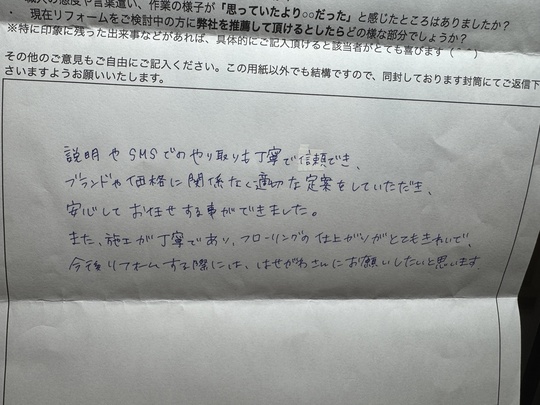 職人の態度や言葉遣い、作業の様子が「思っていたより○○だった」と感じたところはありましたか？
・ 現在リフォームをご検討中の方に弊社を推薦して頂けるとしたらどの様な部分でしょうか？
※特に印象に残った出来事などがあれば、具体的にご記入頂けると該当者がとても喜びます(^ ^)
その他のご意見もご自由にご記入ください。この用紙以外でも結構ですので、同封しております封筒にてご返信下
さいますようお願いいたします。
説明やSMSでのやり取りも丁寧で信頼でき、
ブランドや価格に関係なく適切な定案をしていただき、
安心してお任せする事ができました。
また、施工が丁寧であり、フローリングの仕上がりがとてもきれいで、
今後リフォームする際には、はせがわさんにお願いしたいと思います